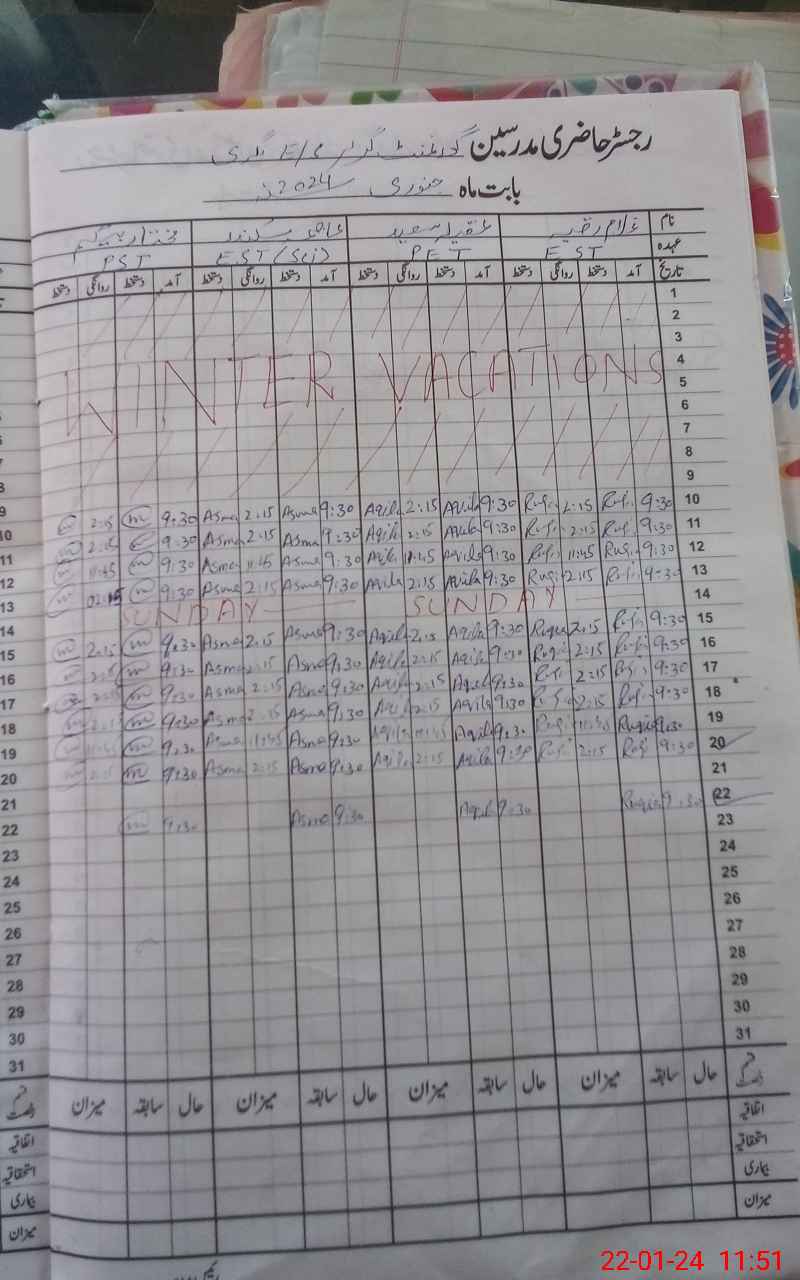 رجسٹر حاضری مدرسین گورنمنٹ گرلز E/S
بابت ماہ جنوری 2024ء
نام غلام رقیہ عقیلہ سعید عاصمہ سکندر مختار بیگم
عہدہ EST PET EST (Sci) PST
تاریخ آمد دستخط روانگی دستخط آمد دستخط روانگی دستخط آمد دستخط روانگی دستخط آمد دستخط روانگی دستخط
1
2
3
4
WINTER VACATIONS
5
6
7
8
9
10 9:30 Ruqi 2:15 Ruqi 9:30 Aqila 2:15 Aqila 9:30 Asma 2:15 Asma 9:30 m 2:15 m
11 9:30 Ruqi 2:15 Ruqi 9:30 Aqila 2:15 Aqila 9:30 Asma 2:15 Asma 9:30 m 2:15 m
12 9:30 Ruqi 11:45 Ruqi 9:30 Aqila 11:45 Aqila 9:30 Asma 11:45 Asma 9:30 m 11:45 m
13 9:30 Ruqi 2:15 Ruqi 9:30 Aqila 2:15 Aqila 9:30 Asma 2:15 Asma 9:30 m 02:15 m
14 SUNDAY SUNDAY
15 9:30 Ruqi 2:15 Ruqia 9:30 Aqila 2:15 Aqila 9:30 Asma 2:15 Asma 9:30 m 2:15 m
16 9:30 Ruqi 2:15 Ruqi 9:30 Aqila 2:15 Aqila 9:30 Asma 2:15 Asma 9:30 m 2:15 m
17 9:30 Ruqi 2:15 Ruqi 9:30 Aqila 2:15 Aqila 9:30 Asma 2:15 Asma 9:30 m 2:15 m
18 9:30 Ruqi 2:15 Ruqi 9:30 Aqila 2:15 Aqila 9:30 Asma 2:15 Asma 9:30 m 2:15 m
19 9:30 Ruqia 11:45 Ruqi 9:30 Aqila 11:45 Aqila 9:30 Asma 11:45 Asma 9:30 m 11:45 m
20 9:30 Ruqi 2:15 Ruqi 9:30 Aqila 2:15 Aqila 9:30 Asma 2:15 Asma 9:30 m 2:15 m
21
22 9:30 Ruqia 9:30 Aqila 9:30 Asma 9:30 m
23
24
25
26
27
28
29
30
31
قسم رخصت حال سابقہ میزان حال سابقہ میزان حال سابقہ میزان حال سابقہ میزان
اتفاقیہ
استحقاقیہ
بیماری
میزان
9
10
11
12
13
14
15
16
17
18
19
20
21
22
23
24
25
26
27
28
29
30
31
قسم رخصت
اتفاقیہ
استحقاقیہ
بیماری
میزان
22-01-24 11:51